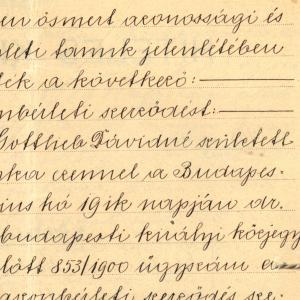 en ösmert azonossági és
leti tanuk jelenlétében
ték a következő:
nbérleti szerződést:
Gottlieb Dávidné született
nka ezennel a Budapes-
ius hó 19ik napján dr.
budapesti királyi közjegy
lőtt 853/1900 ügyszám a
szonbérleti szerződés sze-